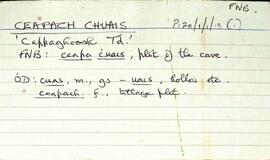 FNB.
CEAPACH CHUAIS
'Cappaghcoosh Td.'
FNB: ceapa cuais, plot of the cave.
ÓD: cuas, m., gs - uais, hollow etc.
ceapach f., tillage plot.